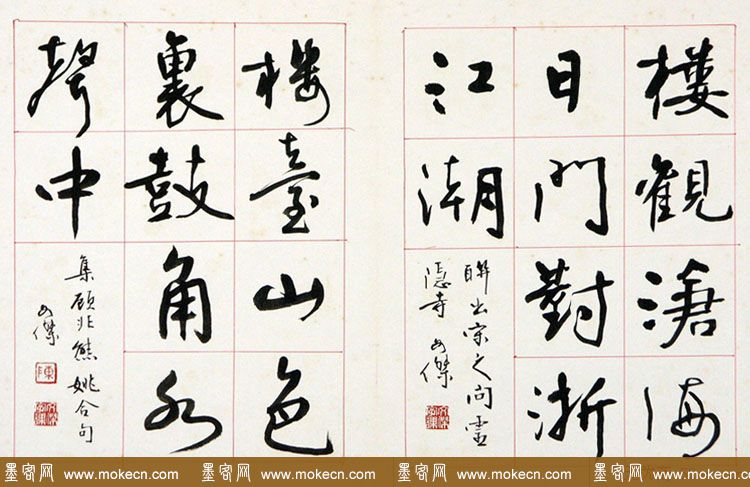 樓觀滄海
日門對浙
江潮
聯出宋之問靈
隱寺 傑
樓臺山色
裏鼓角水
聲中
集顧非熊姚合句
傑
墨客网 www.mokecn.com 墨客网 www.mokecn.com 墨客网 www.mokecn.com 墨客网 www.mokecn.com